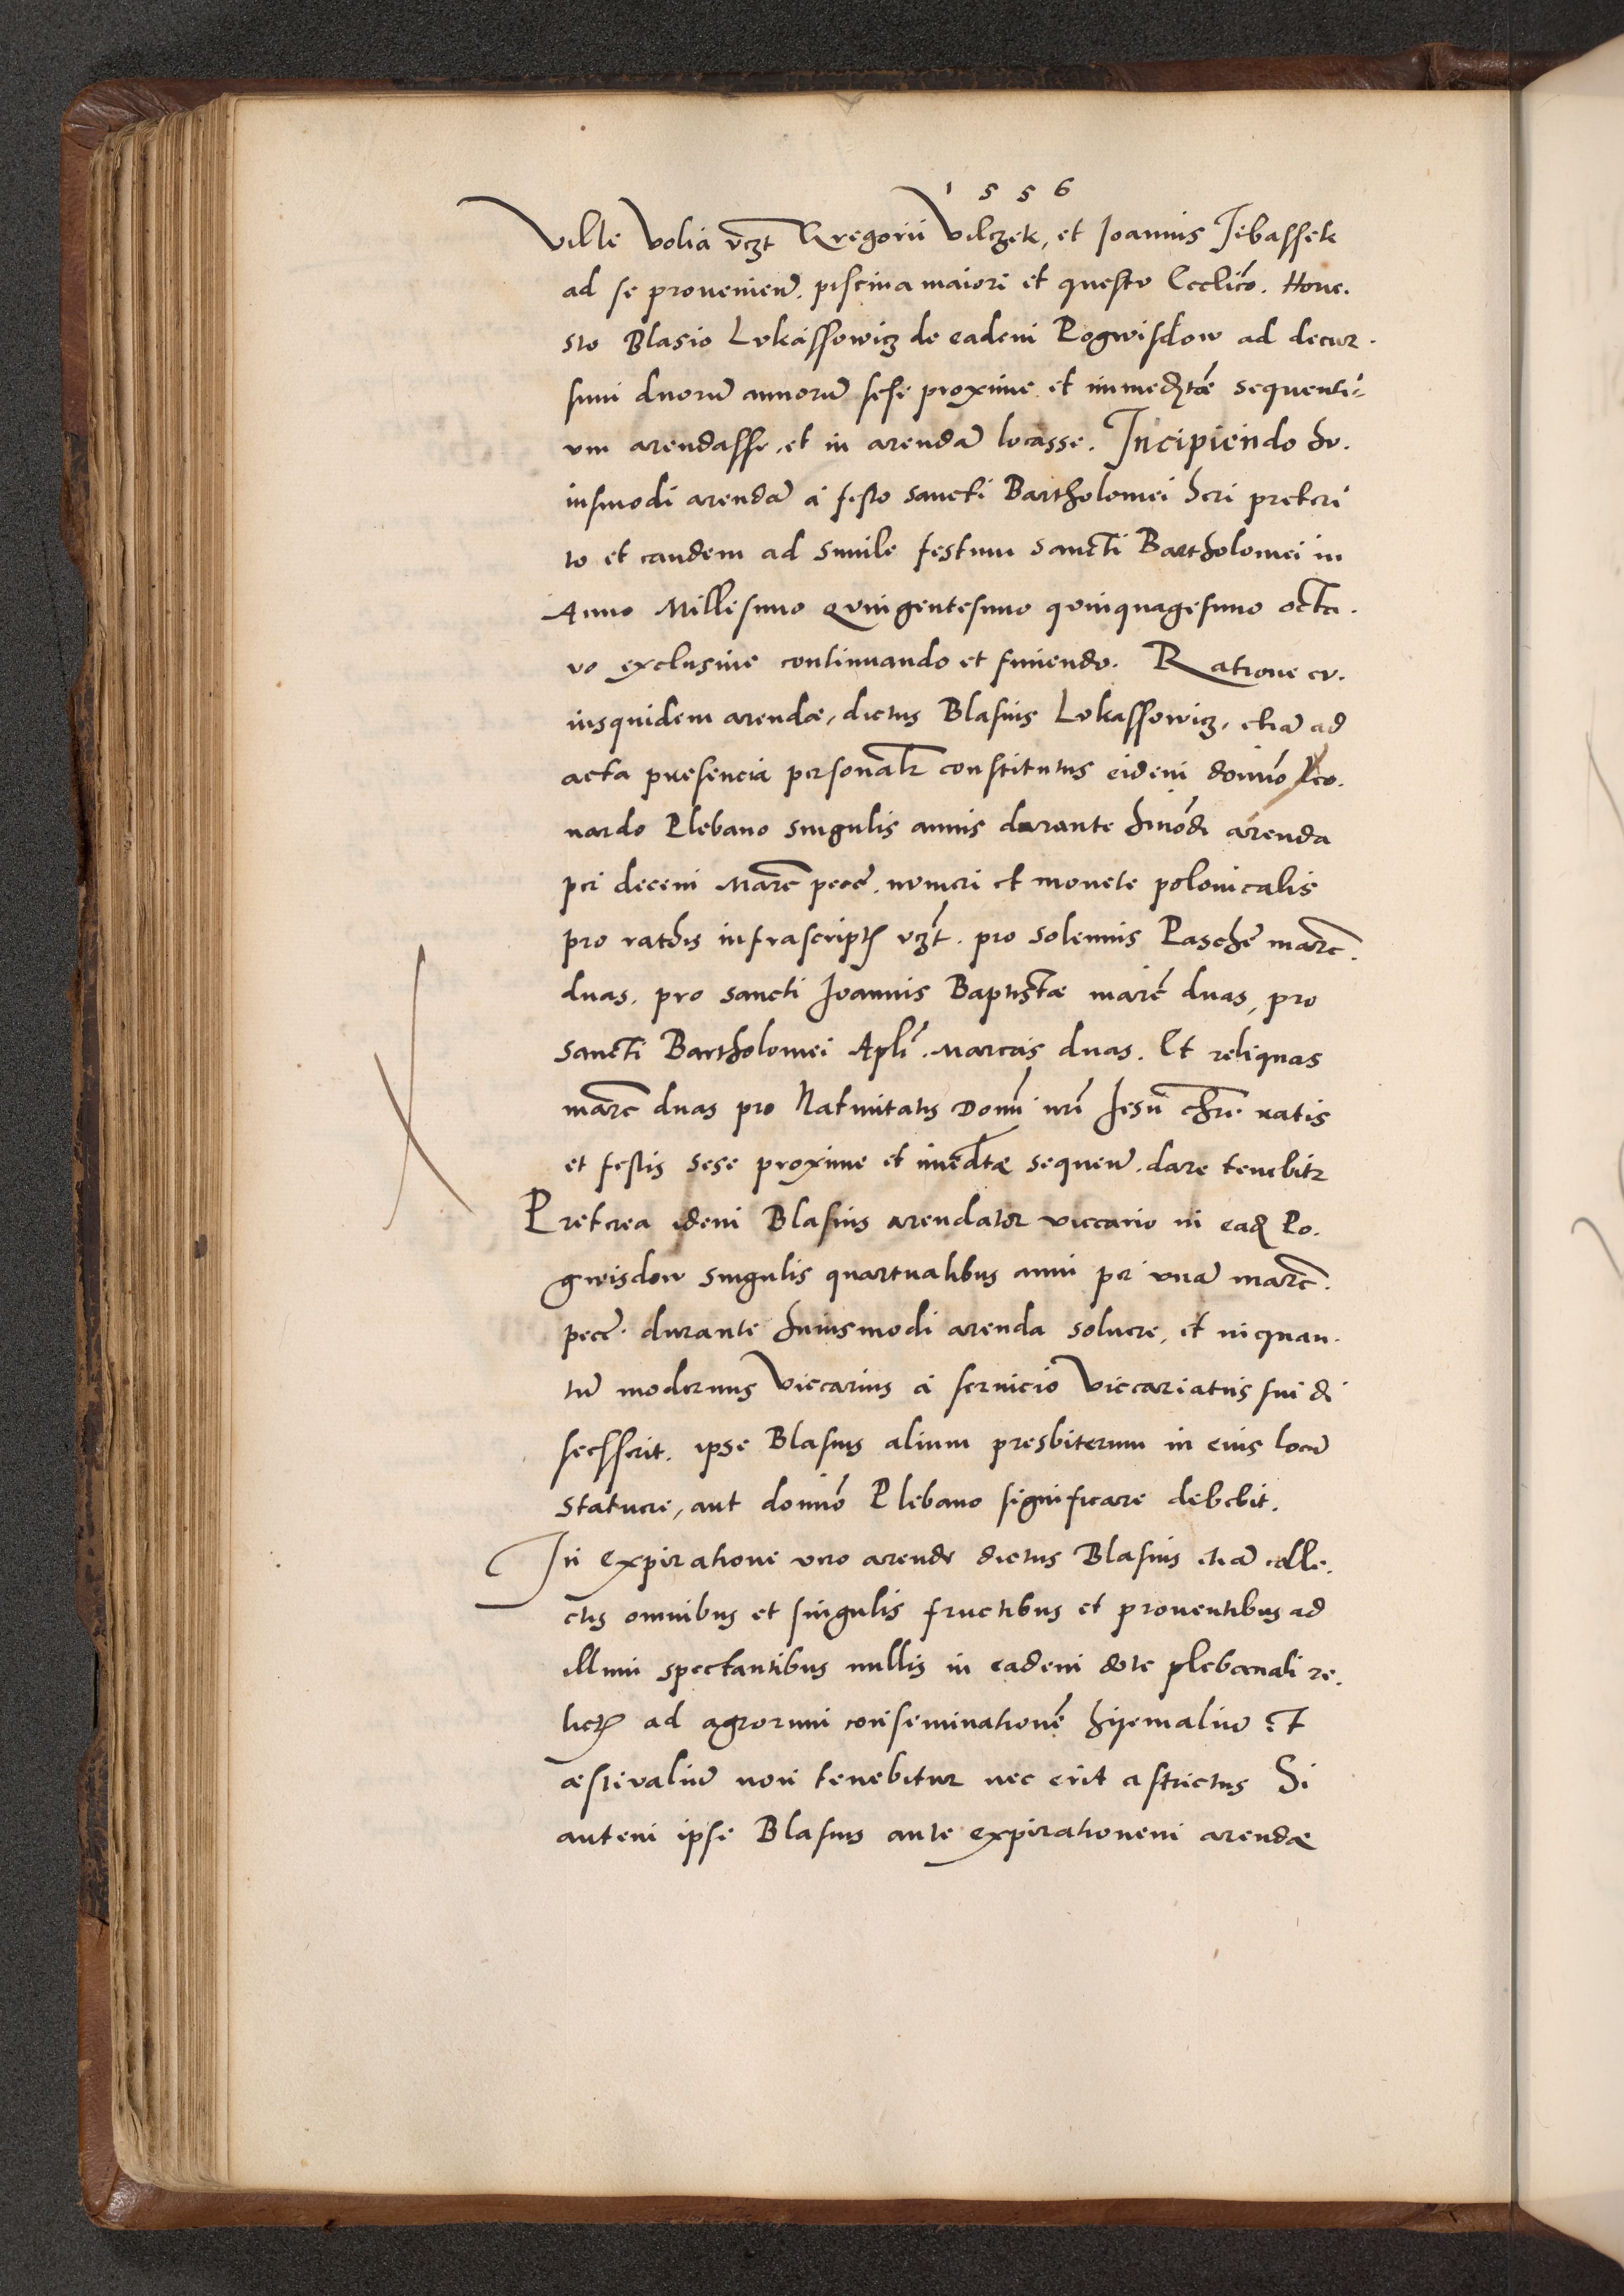 1556
Ville Volia vczt Gregorii Vilczek, et Joannis Jebassek
ad se provenien̄. piscina maiori et questo Eccl̄ico. Hone.
sto Blasio Lvkassowicz de eadem Pogwisdow ad decur.
sum duorū annorū sese proxime et immed̄tæ sequenti=
vm arendasse, et in arendā locasse. Incipiendo hv.
iusmodi arendā á festo sancti Bartholomei heri preteri
to et eandem ad simile festum sancti Bartholomei in
Anno Millesimo Qvingentesimo qvinquagesimo octa.
vo exclusiue continuando et finiendo. Ratione cv.
iusquidem arendæ, dictus Blasius Lvkassowicz, etiā ad
acta presencia personalr̄ constitutus eidem domīo Leo.
nardo Plebano singulis annis durante hmōdi arenda
per decem Marc̄ pecc̄. nvmeri et monete polonicalis
pro rathis infrascript̄ vczt̄. pro solennis Paschē marc̄.
duas. pro sancti Joannis Baptistæ marc̄ duas, pro
sancti Bartholomei Apl̄i. Marcas duas. Et reliquas
marc̄ duas pro Natiuitatis Domī nr̄i Jesū chr̄i ratis
et festis sese proxime et imēdtæ sequen̄. dare tenebitr
Preterea idem Blasius arendator viccario in ead̄ Po.
gwisdow singulis quartualibus anni per vnā marc̄.
pecc̄. durante huiusmodi arenda soluere, et inquan.
tū modernus Viccarius á seruicio Viccariatus sui di
scesserit. ipse Blasius alium presbiterum in eius locū
statuere, aut domīo Plebano significare debebit.
In expiratione vero arende dictus Blasius etiā colle.
ctis omnibus et singulis fructibus et prouentibus ad
illum spectantibus nullis in eadem dote plebanali re.
lict̄ ad agrorum conseminationē hijemaliū et
æstivaliū non tenebitur nec erit astrictus Si
autem ipse Blasius ante expirationem arendæ